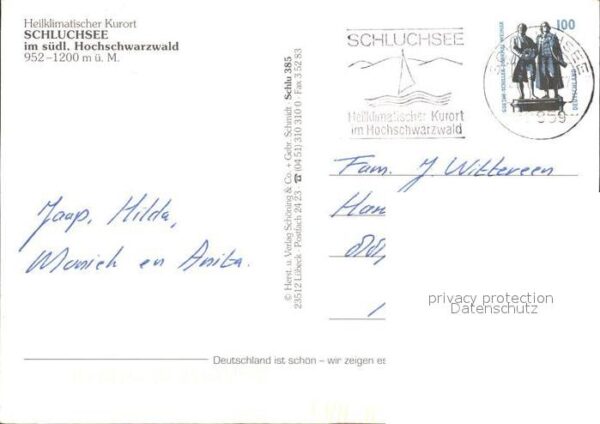 Heilklimatischer Kurort
SCHLUCHSEE
im südl. Hochschwarzwald
952–1200 m ü. M.
Jaap, Hilda,
en Anita.
© Herst. u. Verlag Schöning & Co. + Gebr. Schmidt · Schlu 385
23512 Lübeck · Postfach 24 23 · ☎ (04 51) 310 310 0 · Fax 3 52 83
SCHLUCHSEE
Heilklimatischer Kurort
im Hochschwarzwald
100
Fam. J. Witteveen
privacy protection
Datenschutz
Deutschland ist schön – wir zeigen es